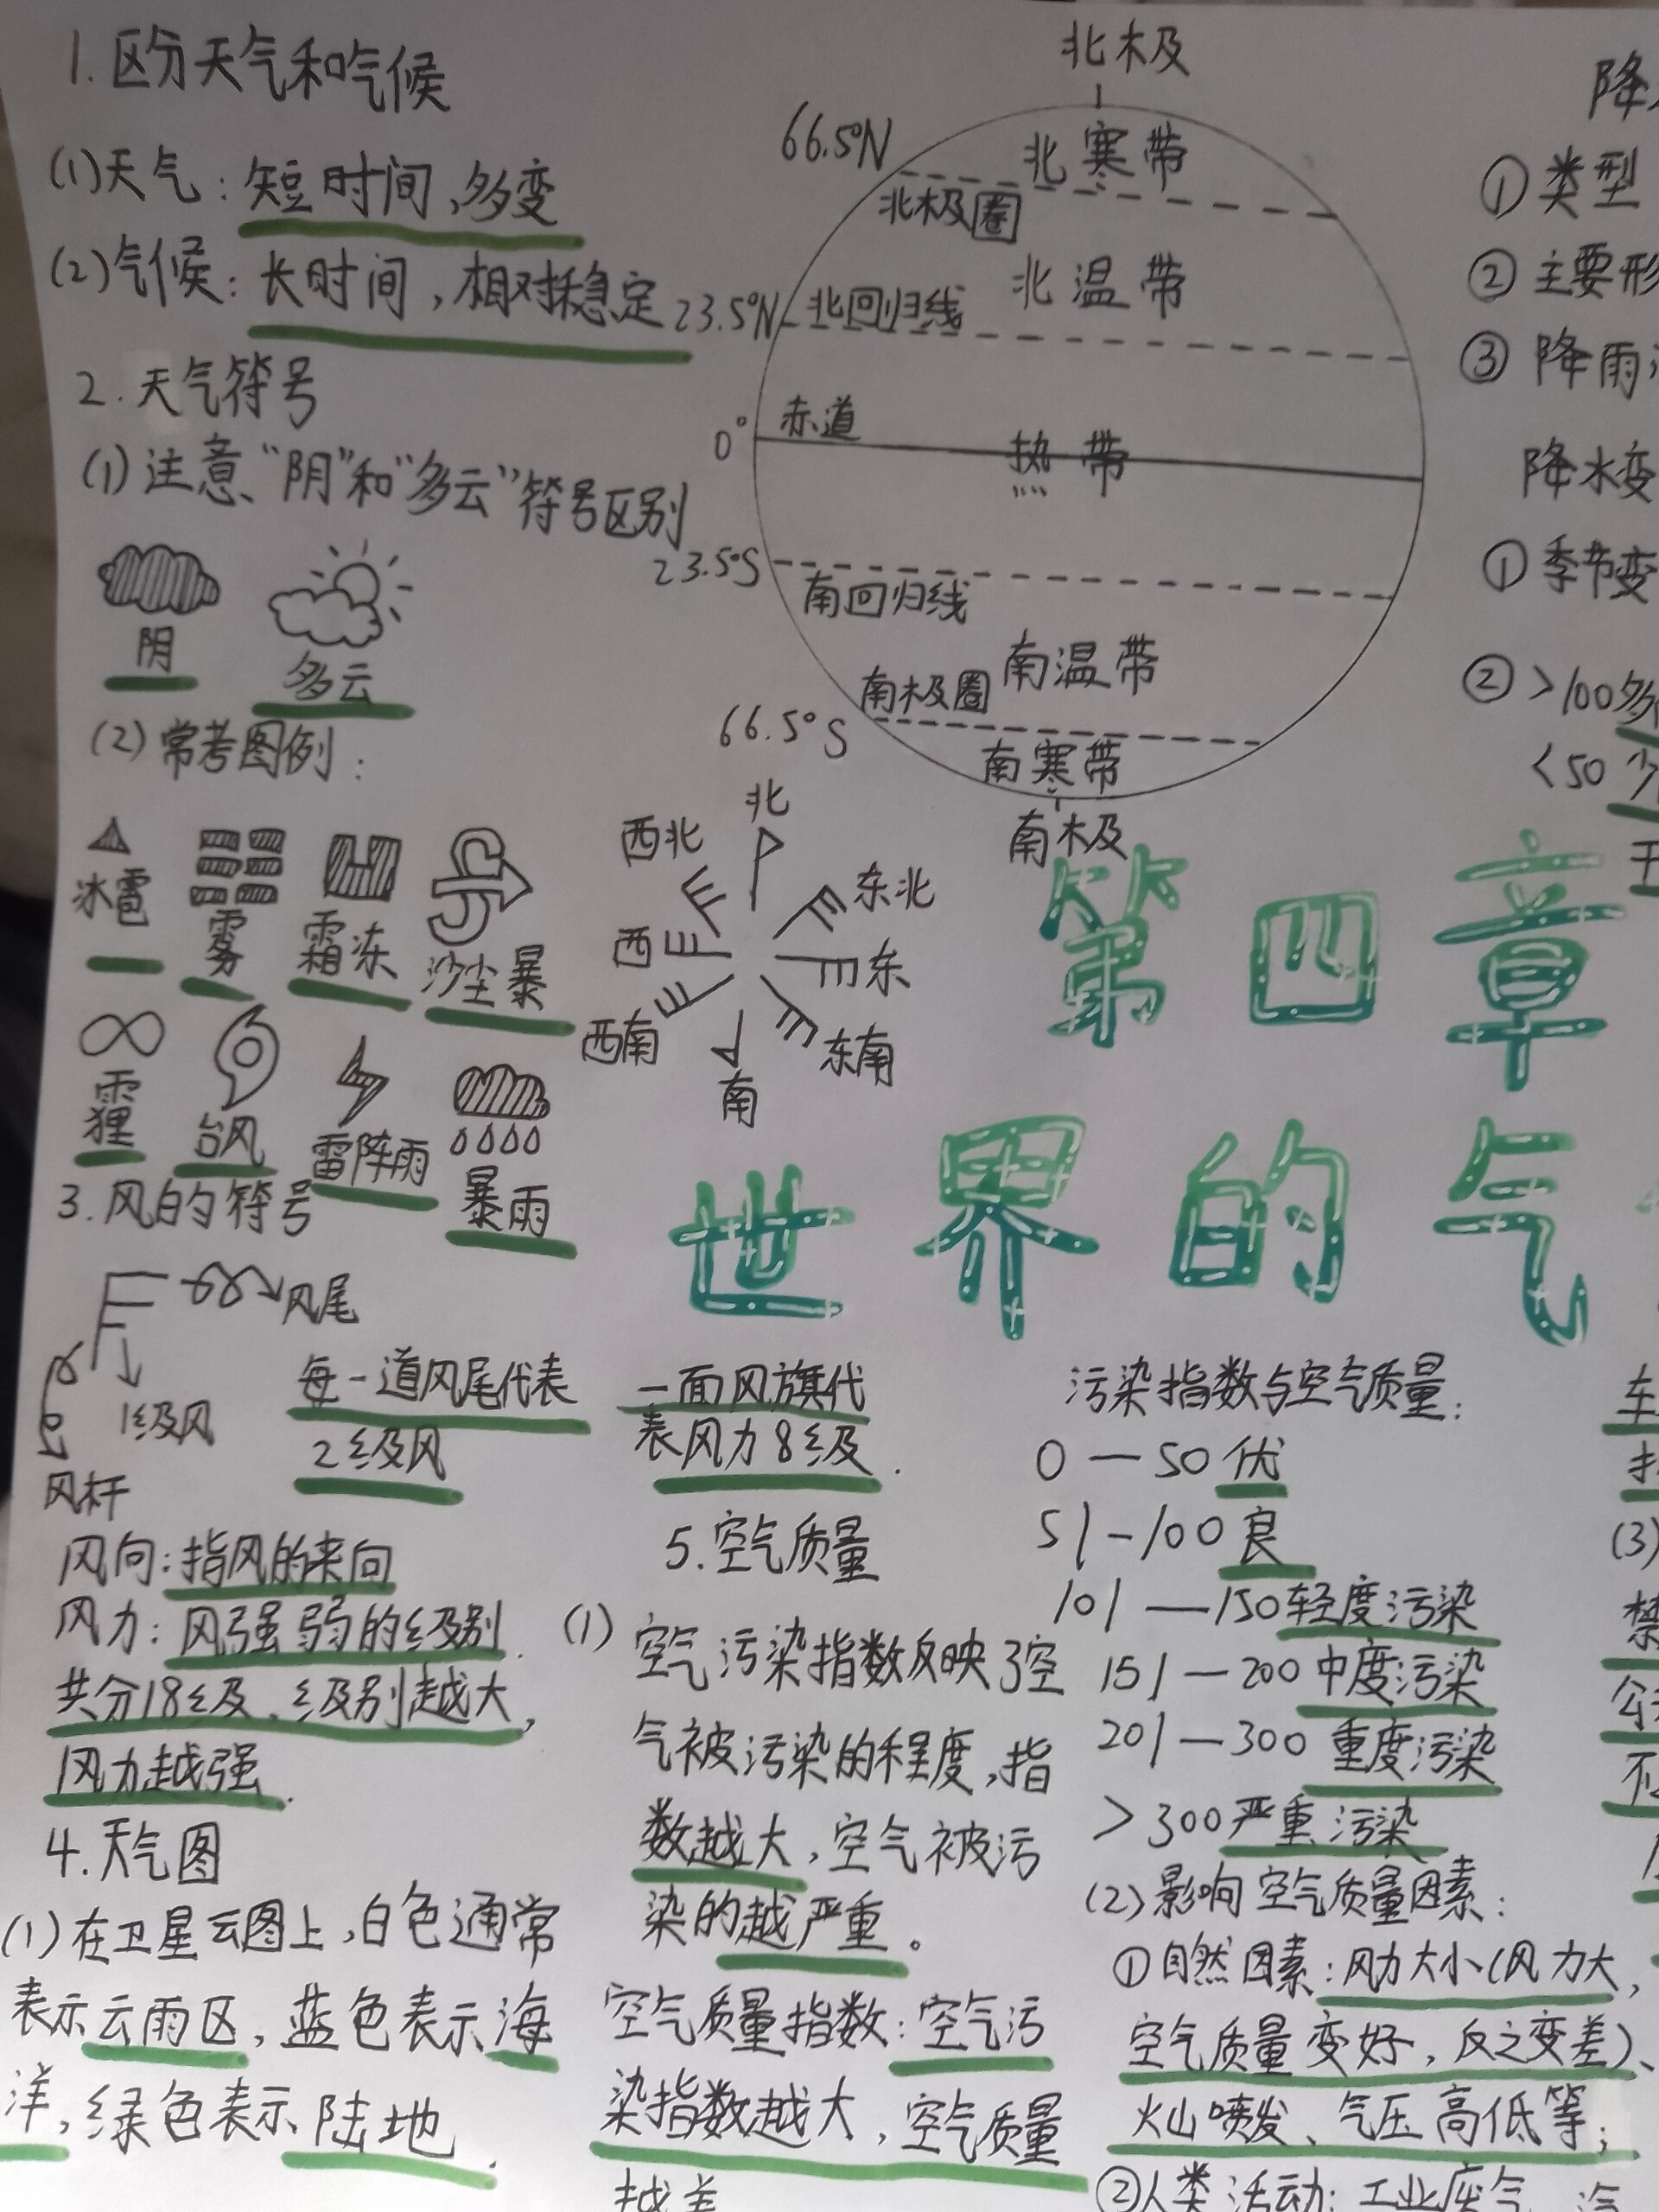 1. 区分天气和气候
(1)天气：短时间,多变
(2)气候：长时间，相对稳定
2.天气符号
(1)注意“阴”和“多云”符号区别
阴
多云
(2)常考图例：
冰雹
雾
霜冻
沙尘暴
霾
台风
雷阵雨
暴雨
3.风的符号
风尾
1级风
风杆
每一道风尾代表
2级风
一面风旗代
表风力8级.
风向：指风的来向
风力：风强弱的级别.
共分18级,级别越大,
风力越强.
4.天气图
(1)在卫星云图上,白色通常
表示云雨区,蓝色表示海
洋,绿色表示陆地.
北极
66.5°N
北寒带
北极圈
北温带
23.5°N
北回归线
0°
赤道
热带
23.5°S
南回归线
南温带
南极圈
66.5°S
南寒带
南极
北
西北
东北
西
东
西南
东南
南
第四章
世界的气
5.空气质量
(1)空气污染指数反映了空
气被污染的程度,指
数越大,空气被污
染的越严重。
空气质量指数：空气污
染指数越大,空气质量
越差
污染指数与空气质量：
0—50优
51-100良
101—150轻度污染
151—200中度污染
201—300重度污染
>300严重污染
(2)影响空气质量因素：
①自然因素：风力大小(风力大,
空气质量变好,反之变差)、
火山喷发、气压高低等；
②人类活动：工业废气、汽
降
①类型
②主要形
③降雨
降水变
①季节变
②>100多
<50少
(3)
禁